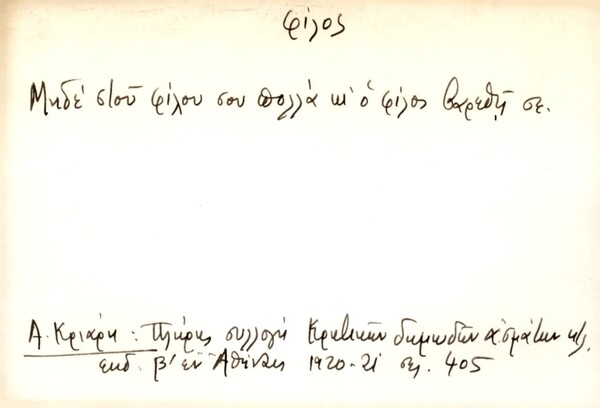 φίλος
Μηδέ στοῦ φίλου σου πολλά κι' ὁ φίλος βαρεθῇ σε.
Α. Κριάρη: Πλήρης συλλογή Κρητικῶν δημωδῶν ᾀσμάτων κτλ.
ἐκδ. β' ἐν Ἀθήναις 1920-21 σελ. 405